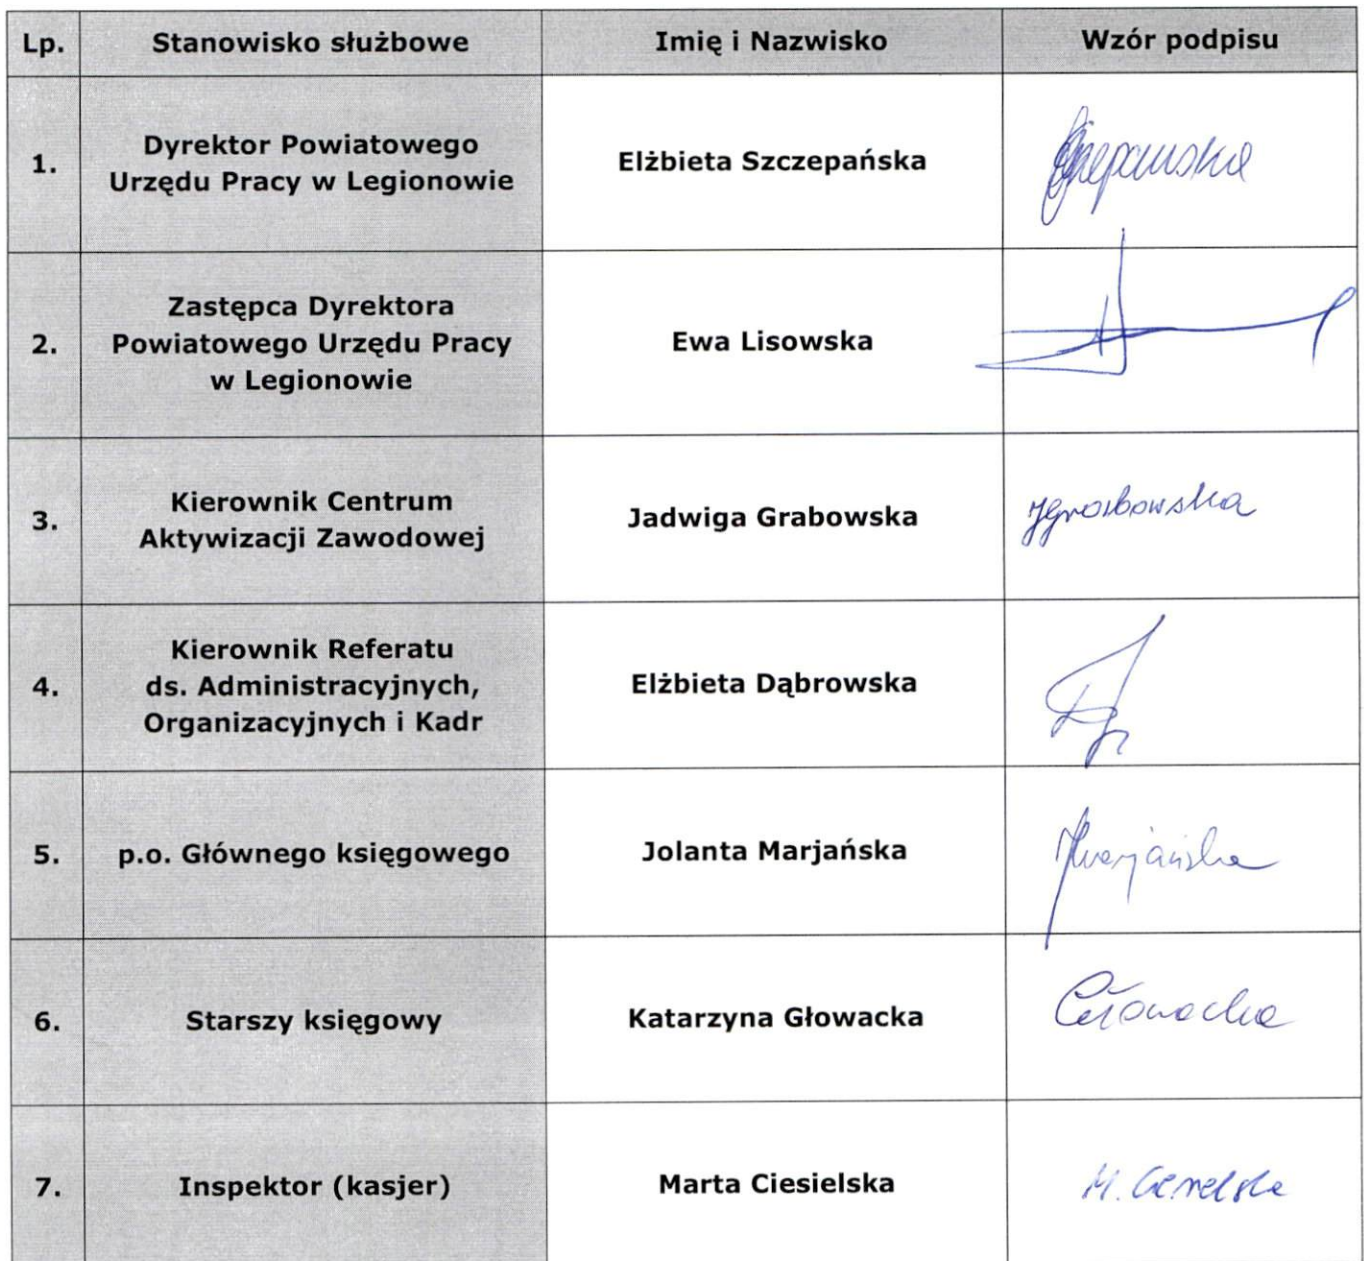 Lp. Stanowisko służbowe Imię i Nazwisko Wzór podpisu
1. Dyrektor Powiatowego
Urzędu Pracy w Legionowie Elżbieta Szczepańska
2. Zastępca Dyrektora
Powiatowego Urzędu Pracy
w Legionowie Ewa Lisowska
3. Kierownik Centrum
Aktywizacji Zawodowej Jadwiga Grabowska JGrabowska
4. Kierownik Referatu
ds. Administracyjnych,
Organizacyjnych i Kadr Elżbieta Dąbrowska
5. p.o. Głównego księgowego Jolanta Marjańska JMarjańska
6. Starszy księgowy Katarzyna Głowacka Głowacka
7. Inspektor (kasjer) Marta Ciesielska M. Ciesielska